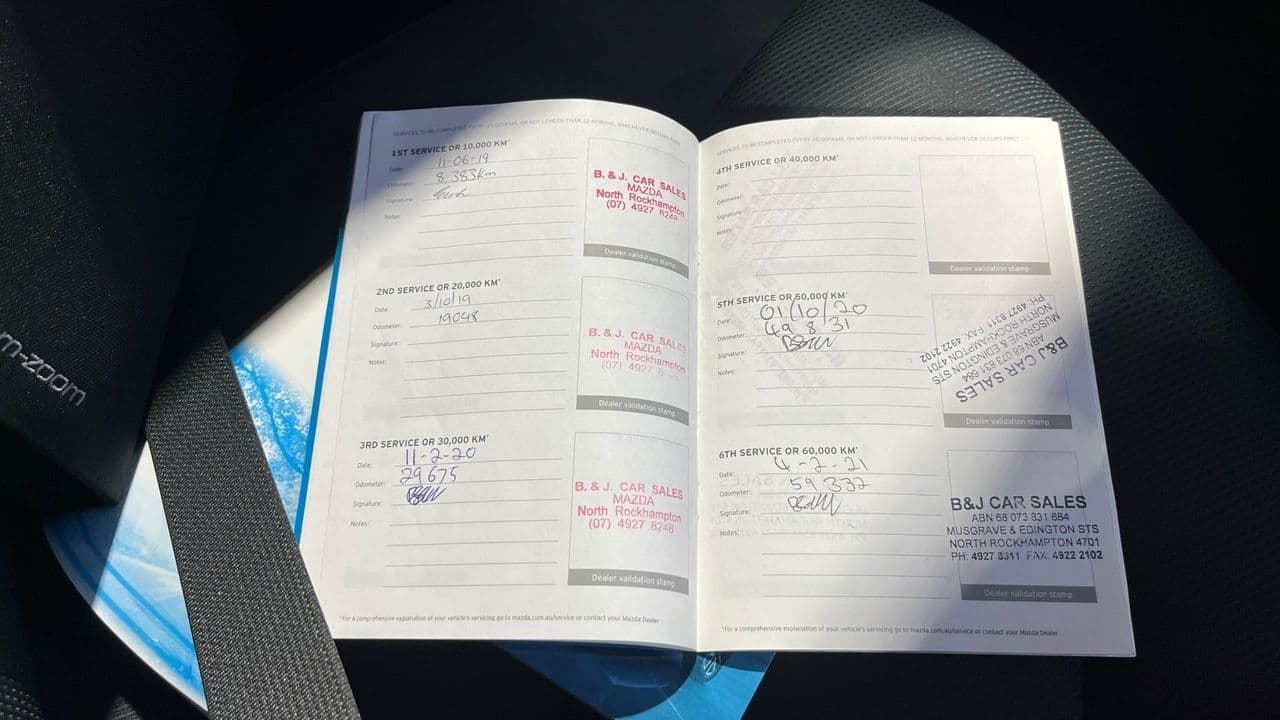 m-zoom
SERVICES TO BE COMPLETED EVERY 10,000KMS, OR NOT LONGER THAN 12 MONTHS, WHICHEVER OCCURS FIRST
1ST SERVICE OR 10,000 KM*
Date: 11-06-19
Odometer: 8.383km
Signature:
Notes:
B. & J. CAR SALES
MAZDA
North Rockhampton
(07) 4927 8248
Dealer validation stamp
2ND SERVICE OR 20,000 KM*
Date: 3/10/19
Odometer: 19048
Signature:
Notes:
B. & J. CAR SALES
MAZDA
North Rockhampton
(07) 4927
Dealer validation stamp
3RD SERVICE OR 30,000 KM*
Date: 11-2-20
Odometer: 29675
Signature:
Notes:
B. & J. CAR SALES
MAZDA
North Rockhampton
(07) 4927 8248
Dealer validation stamp
*For a comprehensive explanation of your vehicle's servicing go to mazda.com.au/service or contact your Mazda Dealer
SERVICES TO BE COMPLETED EVERY 10,000KMS, OR NOT LONGER THAN 12 MONTHS, WHICHEVER OCCURS FIRST
4TH SERVICE OR 40,000 KM*
Date:
Odometer:
Signature:
Notes:
Dealer validation stamp
5TH SERVICE OR 50,000 KM*
Date: 01/10/20
Odometer: 49831
Signature:
Notes:
B&J CAR SALES
ABN 68 073 831 684
MUSGRAVE & EDINGTON STS
NORTH ROCKHAMPTON 4701
PH: 4927 8311 FAX: 4922 2102
Dealer validation stamp
6TH SERVICE OR 60,000 KM*
Date: 4-2-21
Odometer: 59332
Signature:
Notes:
B&J CAR SALES
ABN 68 073 831 684
MUSGRAVE & EDINGTON STS
NORTH ROCKHAMPTON 4701
PH: 4927 8311 FAX: 4922 2102
Dealer validation stamp
*For a comprehensive explanation of your vehicle's servicing go to mazda.com.au/service or contact your Mazda Dealer